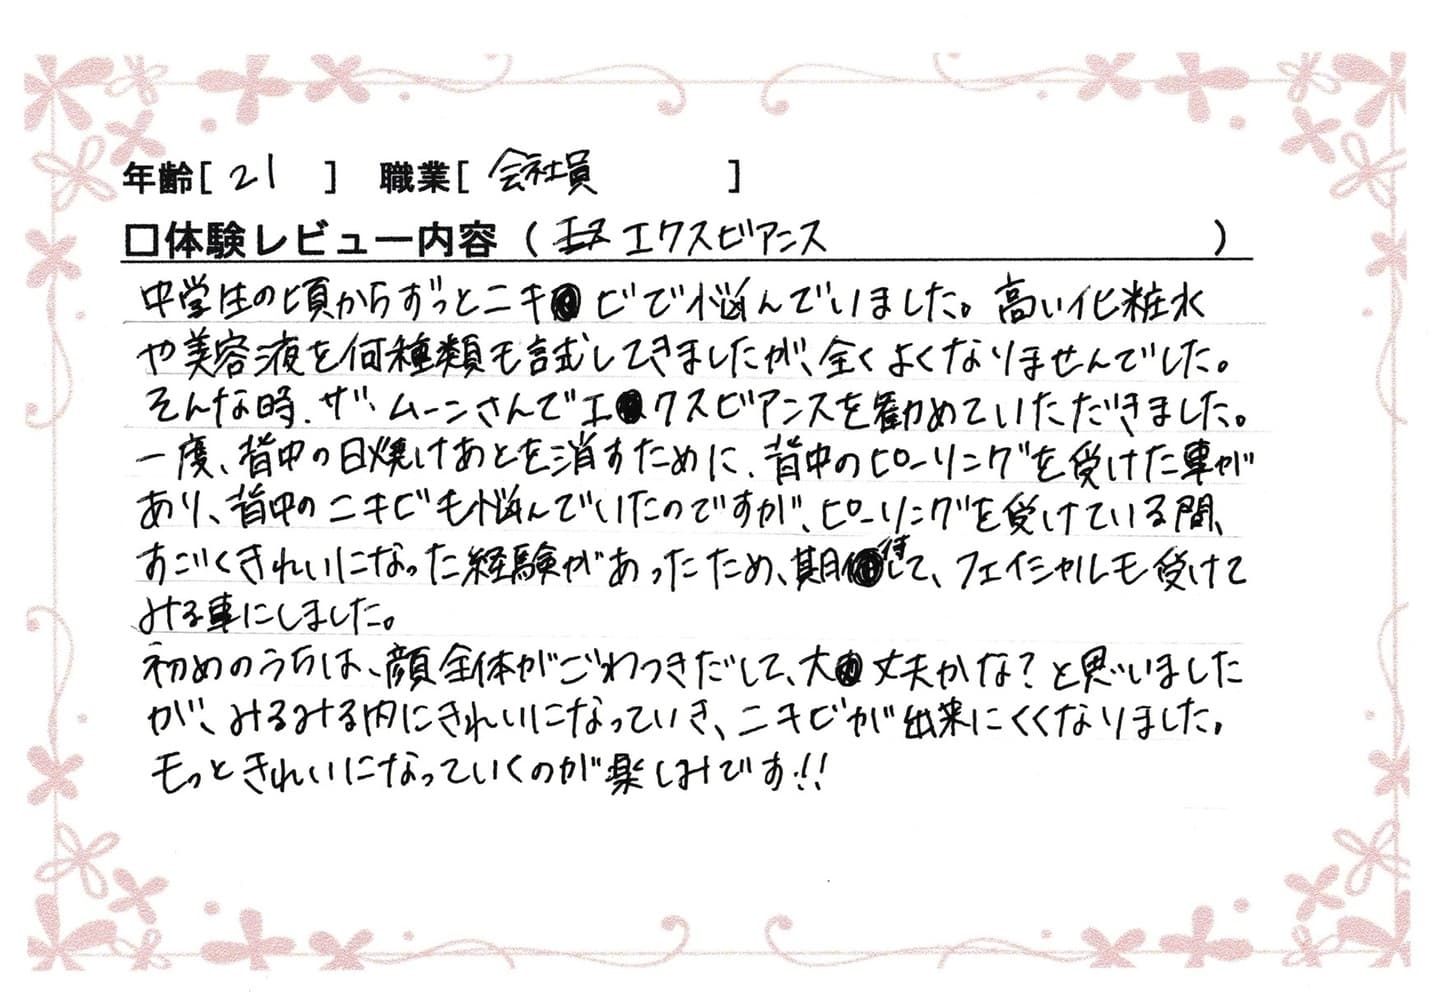 年齢[ 21 ] 職業[ 会社員 ]
□体験レビュー内容 ( エクスビアンス )
中学生の頃からずっとニキビで悩んでいました。高い化粧水
や美容液を何種類も試してきましたが、全くよくなりませんでした。
そんな時、ザ・ムーンさんでエクスビアンスを勧めていただきました。
一度、背中の日焼けあとを消すために、背中のピーリングを受けた事が
あり、背中のニキビも悩んでいたのですが、ピーリングを受けている間、
すごくきれいになった経験があったため、期待して、フェイシャルも受けて
みる事にしました。
初めのうちは、顔全体がごわつきだして、大丈夫かな?と思いました
が、みるみる内にきれいになっていき、ニキビが出来にくくなりました。
もっときれいになっていくのが楽しみです!!